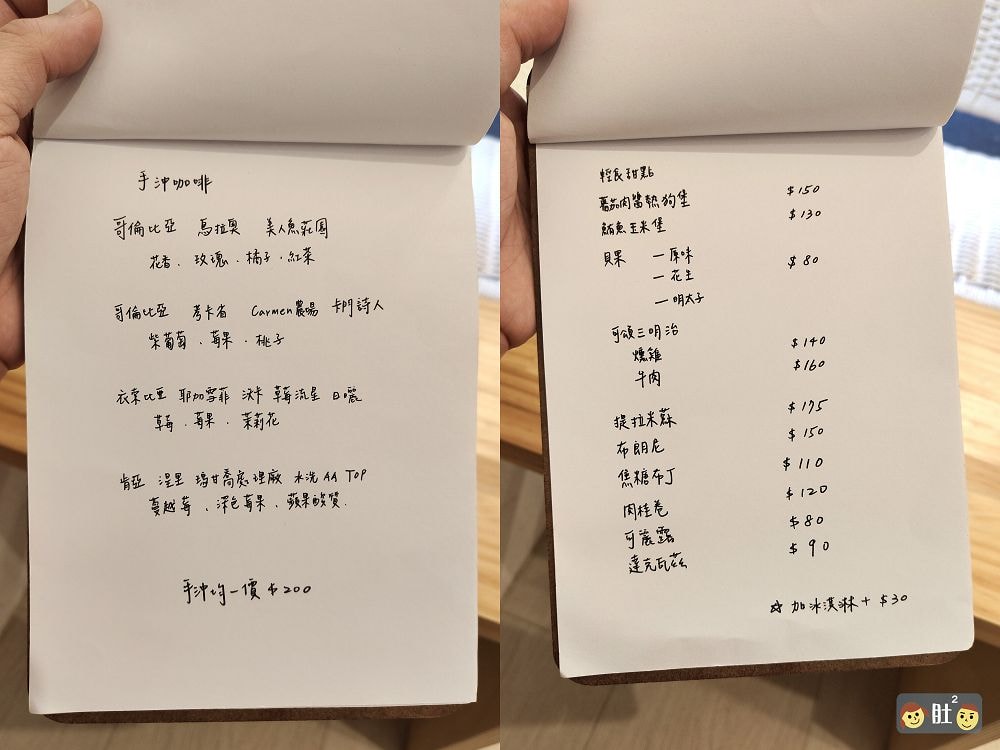 手沖咖啡
哥倫比亞 烏拉奧 美人魚莊園
花香、玫瑰、橘子、紅茶
哥倫比亞 考卡省 Carmen農場 卡門詩人
紫葡萄、莓果、桃子
衣索比亞 耶加雪菲 沃卡 草莓流星 日曬
草莓、莓果、茉莉花
肯亞 涅里 瑪甘喬處理廠 水洗 AA TOP
蔓越莓、深色莓果、蘋果酸質.
手沖均一價 $200
輕食甜點
蕃茄肉醬熱狗堡 $150
鮪魚玉米堡 $130
貝果 —原味 $80
—花生
—明太子
可頌三明治
燻雞 $140
牛肉 $160
提拉米蘇 $175
布朗尼 $150
焦糖布丁 $110
肉桂卷 $120
可麗露 $80
達克瓦茲 $90
☆ 加冰淇淋 + $30
肚2